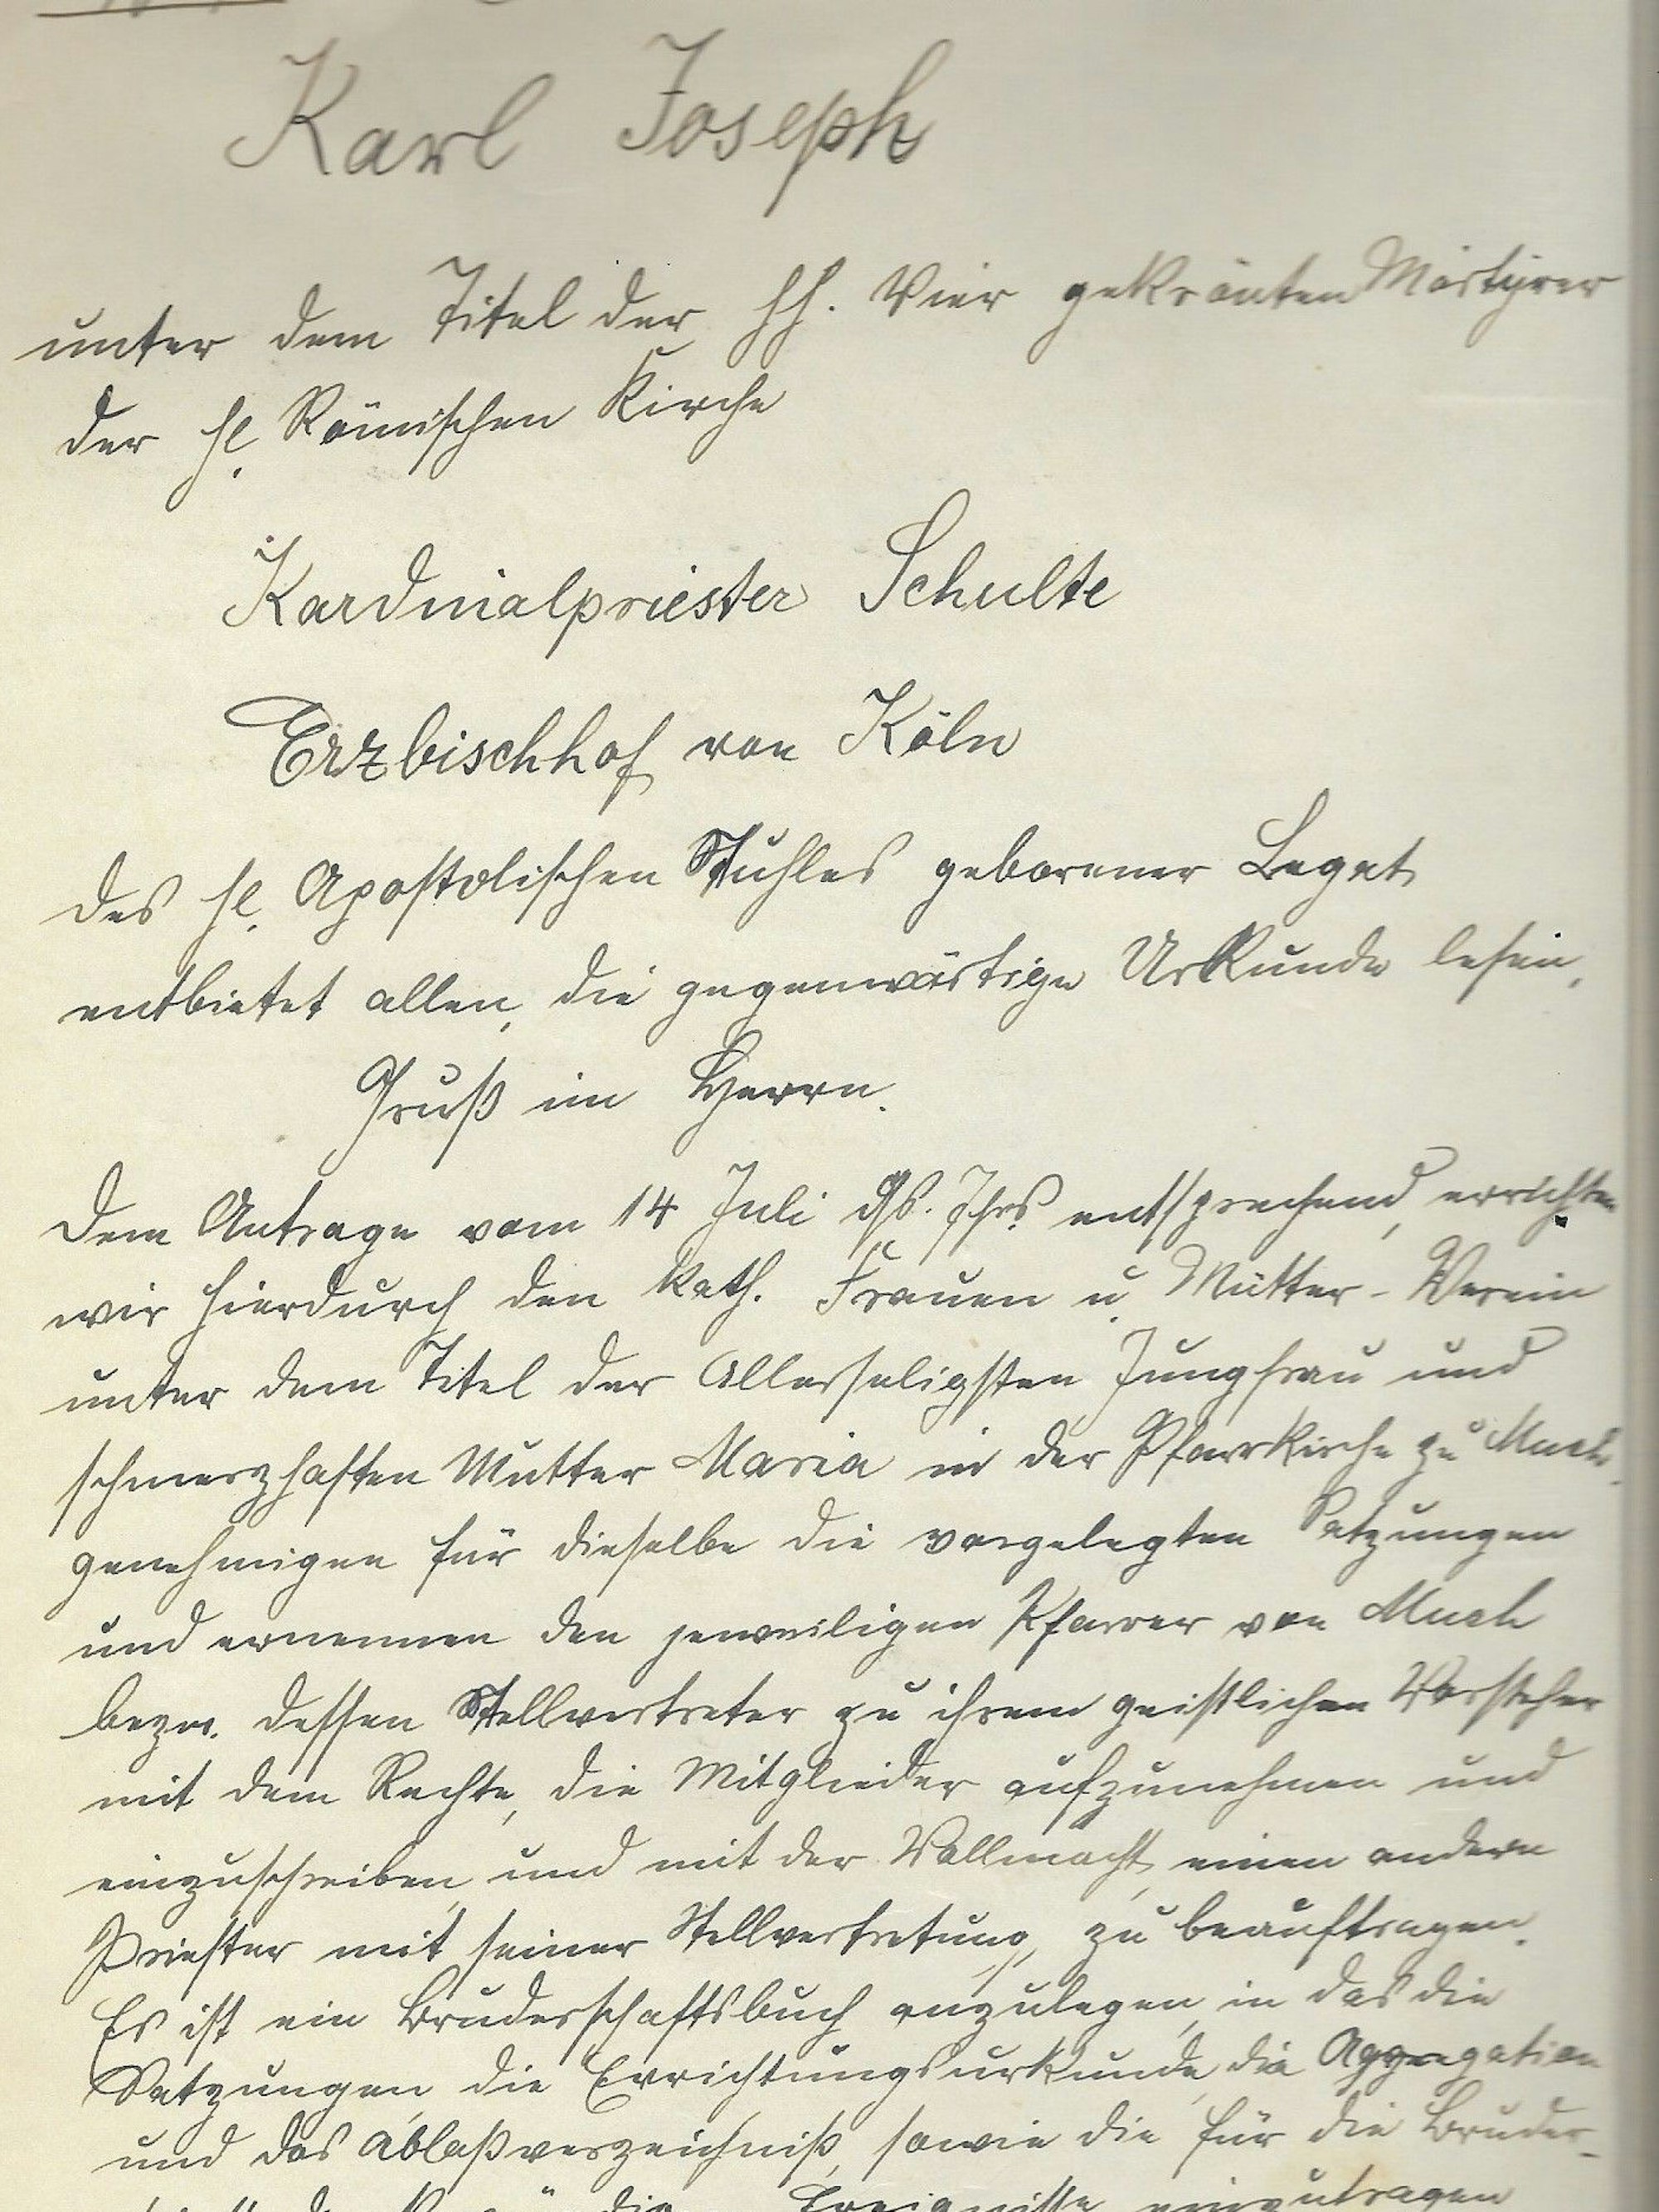 Karl Joseph
unter dem Titel der hh. Vier gekrönten Märtyrer
der hl. Römischen Kirche
Kardinalpriester Schulte
Erzbischhof von Köln
des hl. Apostolischen Stuhles geborener Legat
entbietet allen, die gegenwärtige Urkunde lesen,
Gruß im Herrn.
Dem Antrage vom 14 Juli ds. Jhrs entsprechend, errichten
wir hierdurch den kath. Frauen u. Mütter-Verein
unter dem Titel der Allerseligsten Jungfrau und
schmerzhaften Mutter Maria in der Pfarrkirche zu Much,
genehmigen für dieselbe die vorgelegten Satzungen
und ernennen den jeweiligen Pfarrer von Much
bezw. dessen Stellvertreter zu ihrem geistlichen Vorsteher
mit dem Rechte, die Mitglieder aufzunehmen und
einzuschreiben, und mit der Vollmacht, einen andern
Priester mit seiner Stellvertretung zu beauftragen.
Es ist ein Bruderschaftsbuch anzulegen, in das die
Satzungen, die Errichtungsurkunde, die Aggregation
und das Ablaßverzeichniß, sowie die für die Bruder-
Ereignisse einzutragen